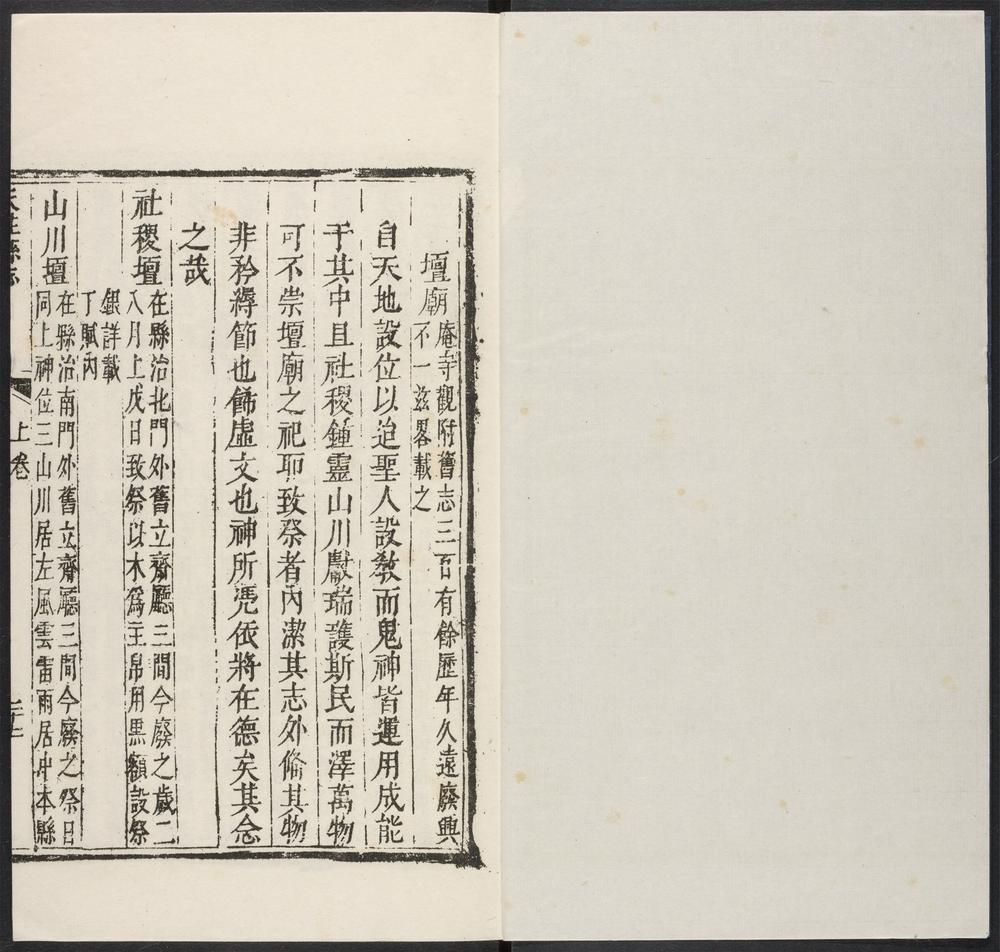 壇廟庵寺觀附舊志三百有餘歷年久遠廢興
不一兹畧載之
自天地設位以迨聖人設敎而鬼神皆運用成能
于其中且社稷鍾靈山川獻瑞護斯民而澤萬物
可不崇壇廟之祀耶致祭者內潔其志外脩其物
非矜縟節也飾虛文也神所凭依將在德矣其念
之哉
社稷壇在縣治北門外舊立齋廳三間今廢之歲二
八月上戊日致祭以木爲主帛用黑額設祭
銀詳載
丁賦內
山川壇在縣治南門外舊立齋廳三間今廢之祭日
同上神位三山川居左風雲雷雨居中本縣
縣志
上卷